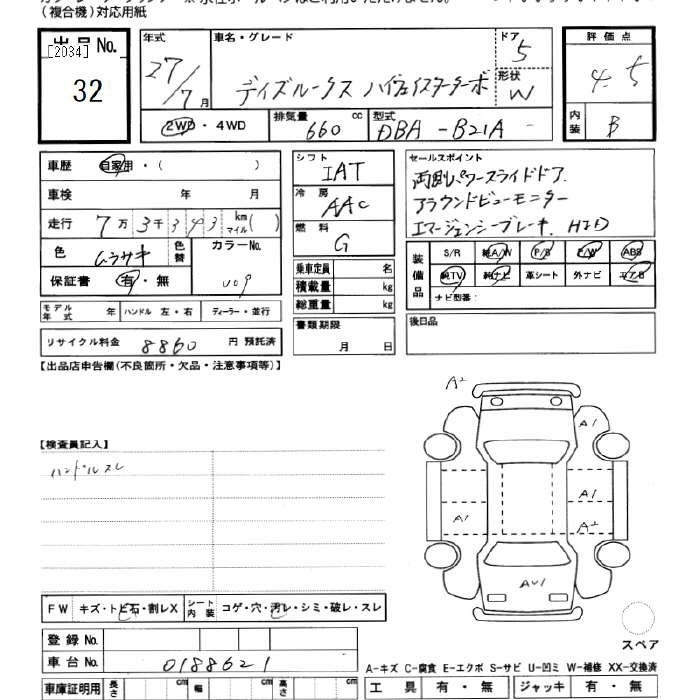 (複合機)対応用紙
出品No. [2034] 32
年式 27/7月
車名・グレード デイズルークス ハイウェイスターターボ
ドア 5
形状 W
評価点 4.5
内装 B
2WD・4WD
排気量 660 cc
型式 DBA-B21A
車歴 自家用・( )
車検 年 月
走行 7万3千343 km マイル( )
色 ムラサキ 色替 カラーNo.
保証書 有・無
シフト IAT
冷房 AAC
燃料 G
乗車定員 名
積載量 kg
総重量 kg
書類期限 月 日
セールスポイント
両側パワースライドドア
アラウンドビューモニター
エマージェンシーブレーキ. HID
装備品 S/R 純A/W P/S P/W ABS
純TV 純ナビ 革シート 外ナビ エアB
ナビ型番:
後日品
モデル年式 年 ハンドル 左・右 ディーラー・並行
リサイクル料金 8860 円 預託済
【出品店申告欄(不良箇所・欠品・注意事項等)】
【検査員記入】
ハンドルスレ
A2
A1
A1
A1
A2
AU1
スペア
FW キズ・トビ石・割レX シート内装 コゲ・穴・汚レ・シミ・破レ・スレ
登録No.
車台No. 0188621
A-キズ C-腐食 E-エクボ S-サビ U-凹ミ W-補修 XX-交換済
車庫証明用 長さ cm 幅 cm 高さ cm
工具 有・無 ジャッキ 有・無